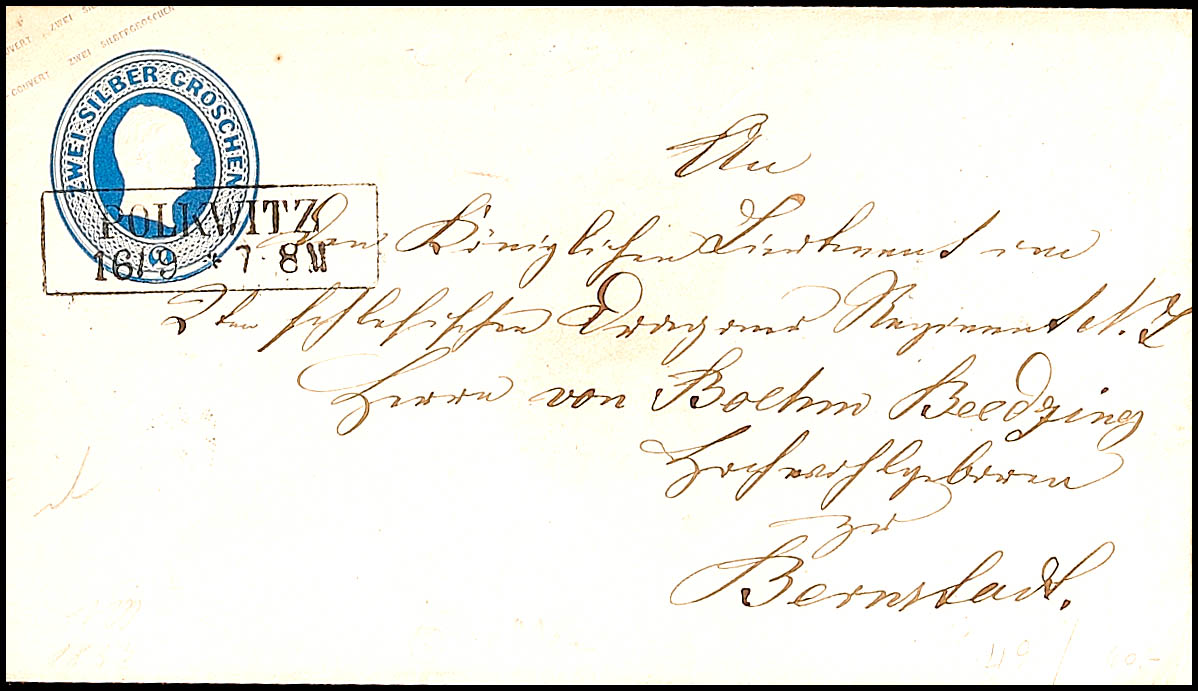 COUVERT ZWEI SILBERGROSCHEN
ZWEI SILBER GROSCHEN
POLKWITZ
16/9 * 7 8 N
An
den Königlichen Lieutenant im
2ten schlesischen Dragoner Regiment N.
Herrn von Boehm Beedzing
Hochwohlgeboren
zu
Bernstadt.